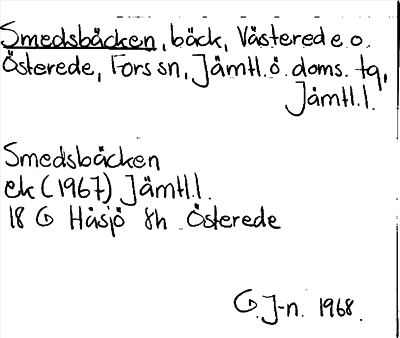 Smedsbäcken, bäck, Västerede o.
Österede, Fors sn, Jämtl. ö. doms. tg,
Jämtl. l.
Smedsbäcken
ek (1967) Jämtl. l.
18 G Håsjö 8h Österede
G. J-n. 1968.